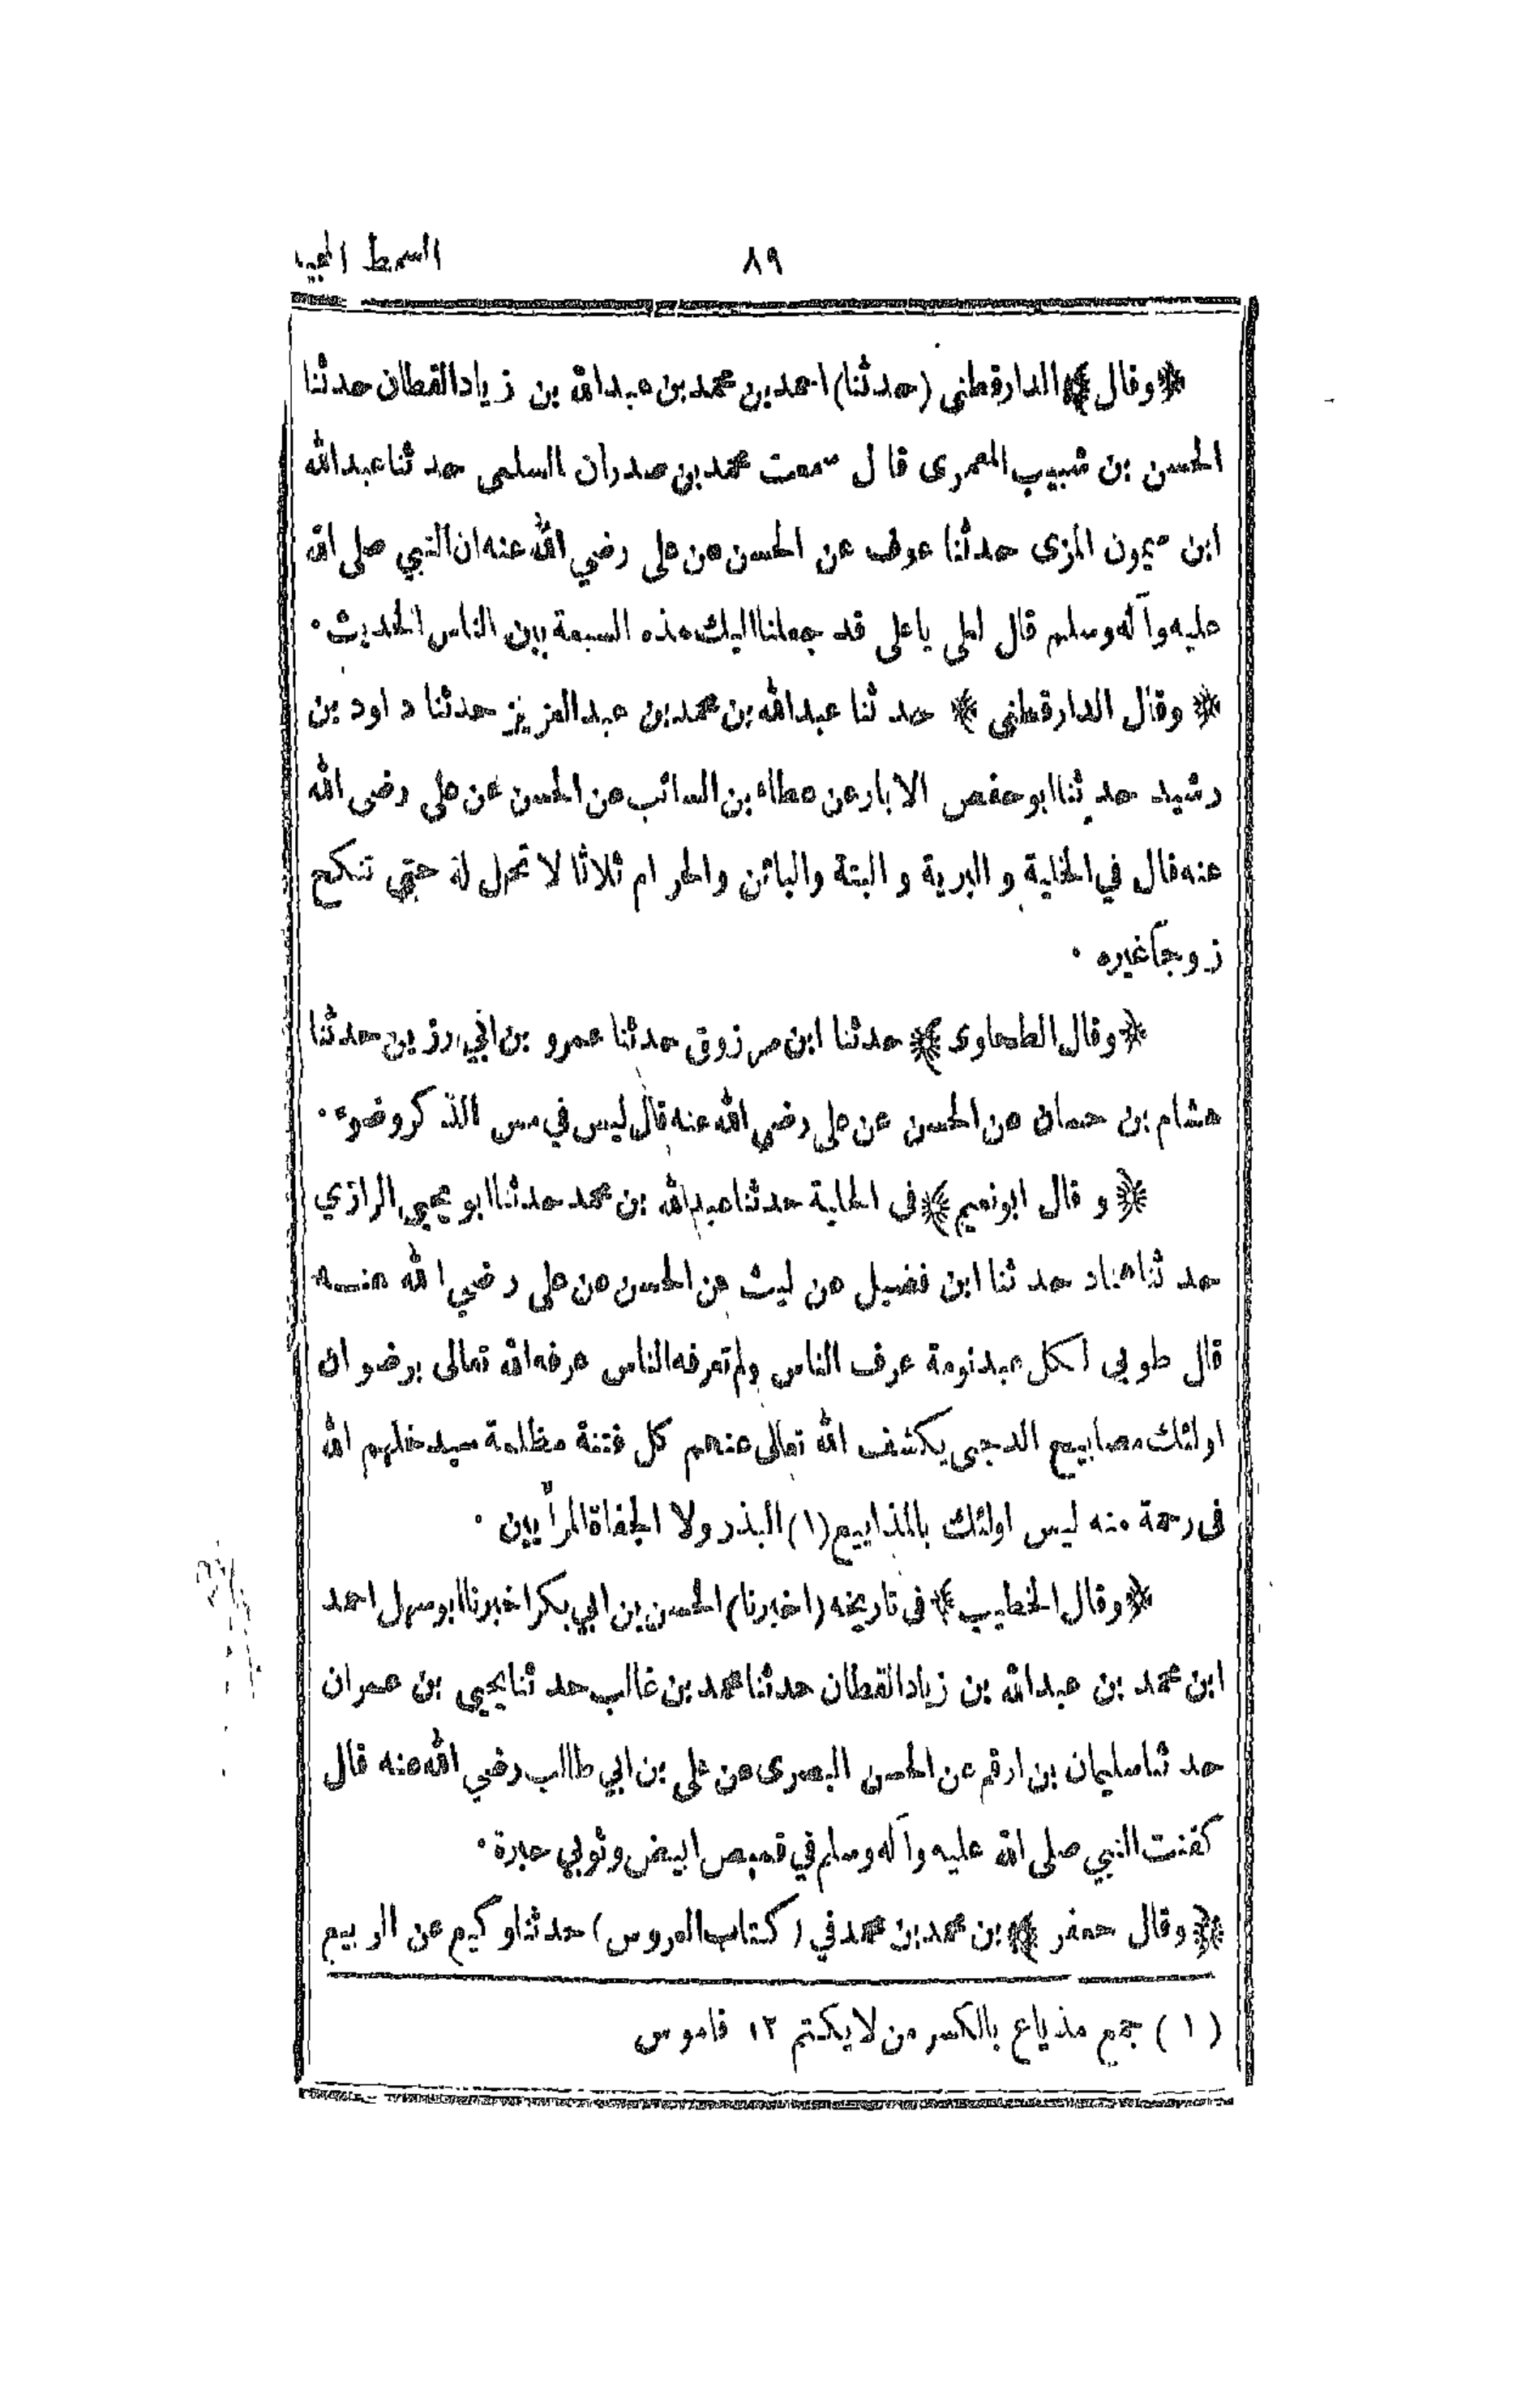 السمط المجيد
٨٩
﴿وقال﴾ الدارقطنى (حدثنا) احمد بن محمد بن عبدالله بن زياد القطان حدثنا
الحسن بن شبيب المعمرى قال سمعت محمد بن صدران السلمى حدثنا عبدالله
ابن ميمون المزى حدثنا عوف عن الحسن عن على رضي الله عنه ان النبي صلى الله
عليه وآله وسلم قال لعلى يا على قد جعلنا اليك هذه السبعة بين الناس الحديث ٠
﴿ وقال الدارقطنى ﴾ حدثنا عبدالله بن محمد بن عبدالعزيز حدثنا داود بن
رشيد حدثنا ابو حفص الابار عن عطاء بن السائب عن الحسن عن على رضى الله
عنه قال في الخلية و البرية و البتة والبائن والحرام ثلاثا لا تحل له حتى تنكح
زوجا غيره ٠
﴿وقال الطحاوى﴾ حدثنا ابن مرزوق حدثنا عمرو بن ابي رزين حدثنا
هشام بن حسان عن الحسن عن على رضي الله عنه قال ليس في مس الذكر وضوء ٠
﴿ و قال ابو نعيم ﴾ فى الحلية حدثنا عبدالله بن محمد حدثنا ابو يحيى الرازي
حدثنا هناد حدثنا ابن فضيل عن ليث عن الحسن عن على رضي الله عنه
قال طوبى لكل عبد نومة عرف الناس ولم تعرفه الناس عرفه الله تعالى برضوان
اولئك مصابيح الدجى يكشف الله تعالى عنهم كل فتنة مظلمة سيدخلهم الله
فى رحمة منه ليس اولئك بالمذاييع (١) البذر ولا الجفاة المرأيين ٠
﴿وقال الخطيب﴾ فى تاريخه (اخبرنا) الحسن بن ابي بكر اخبرنا ابو سهل احمد
ابن محمد بن عبدالله بن زياد القطان حدثنا محمد بن غالب حدثنا يحيى بن عمران
حدثنا سليمان بن ارقم عن الحسن البصرى عن على بن ابي طالب رضي الله عنه قال
كفنت النبي صلى الله عليه وآله وسلم في قميص ابيض وثوبي حبرة ٠
﴿وقال جعفر﴾ بن محمد بن محمد في (كتاب العروس) حدثنا وكيع عن الربيع
(١) جمع مذياع بالكسر من لا يكتم ١٢ قاموس